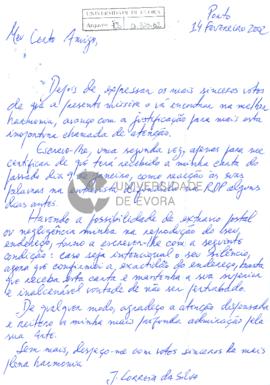 UNIVERSIDADE DE ÉVORA
Porto
14 Fevereiro 2002
Meu Certo Amigo,
Depois de expressar os mais sinceros votos
de que a presente missiva o vá encontrar na melhor
harmonia, avanço com a justificação para mais esta
inoportuna chamada de atenção.
Escrevo-lhe, uma segunda vez, apenas para me
certificar de que terá recebido a minha carta do
passado dia 9 Janeiro, como reacção às suas
palavras na entrevista da RDP alguns
dias antes.
UNIVERSIDADE
DE ÉVORA
Havendo a possibilidade de extravio postal
ou negligência minha na reprodução do seu
endereço, torno a escrever-lhe com a seguinte
condição: caso seja intencional o seu silêncio,
agora que confirmei a exactidão do endereço, basta
que receba esta carta e mantenha a sua superior
e inalienável vontade de não ser perturbado.
De qualquer modo, agradeço a atenção dispensada
e reitero a minha mais profunda admiração pela
sua Arte.
Sem mais, despeço-me com votos sinceros da mais
plena harmonia
J. Correia da Silva